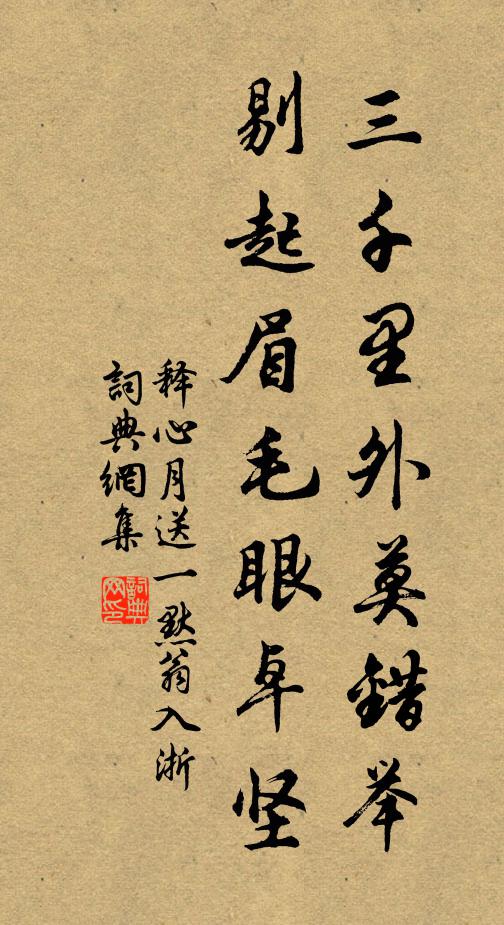 三千里外莫錯举
剔起眉毛眼卓坚
释心月送一默翁入浙
詞典網集
詞典网印